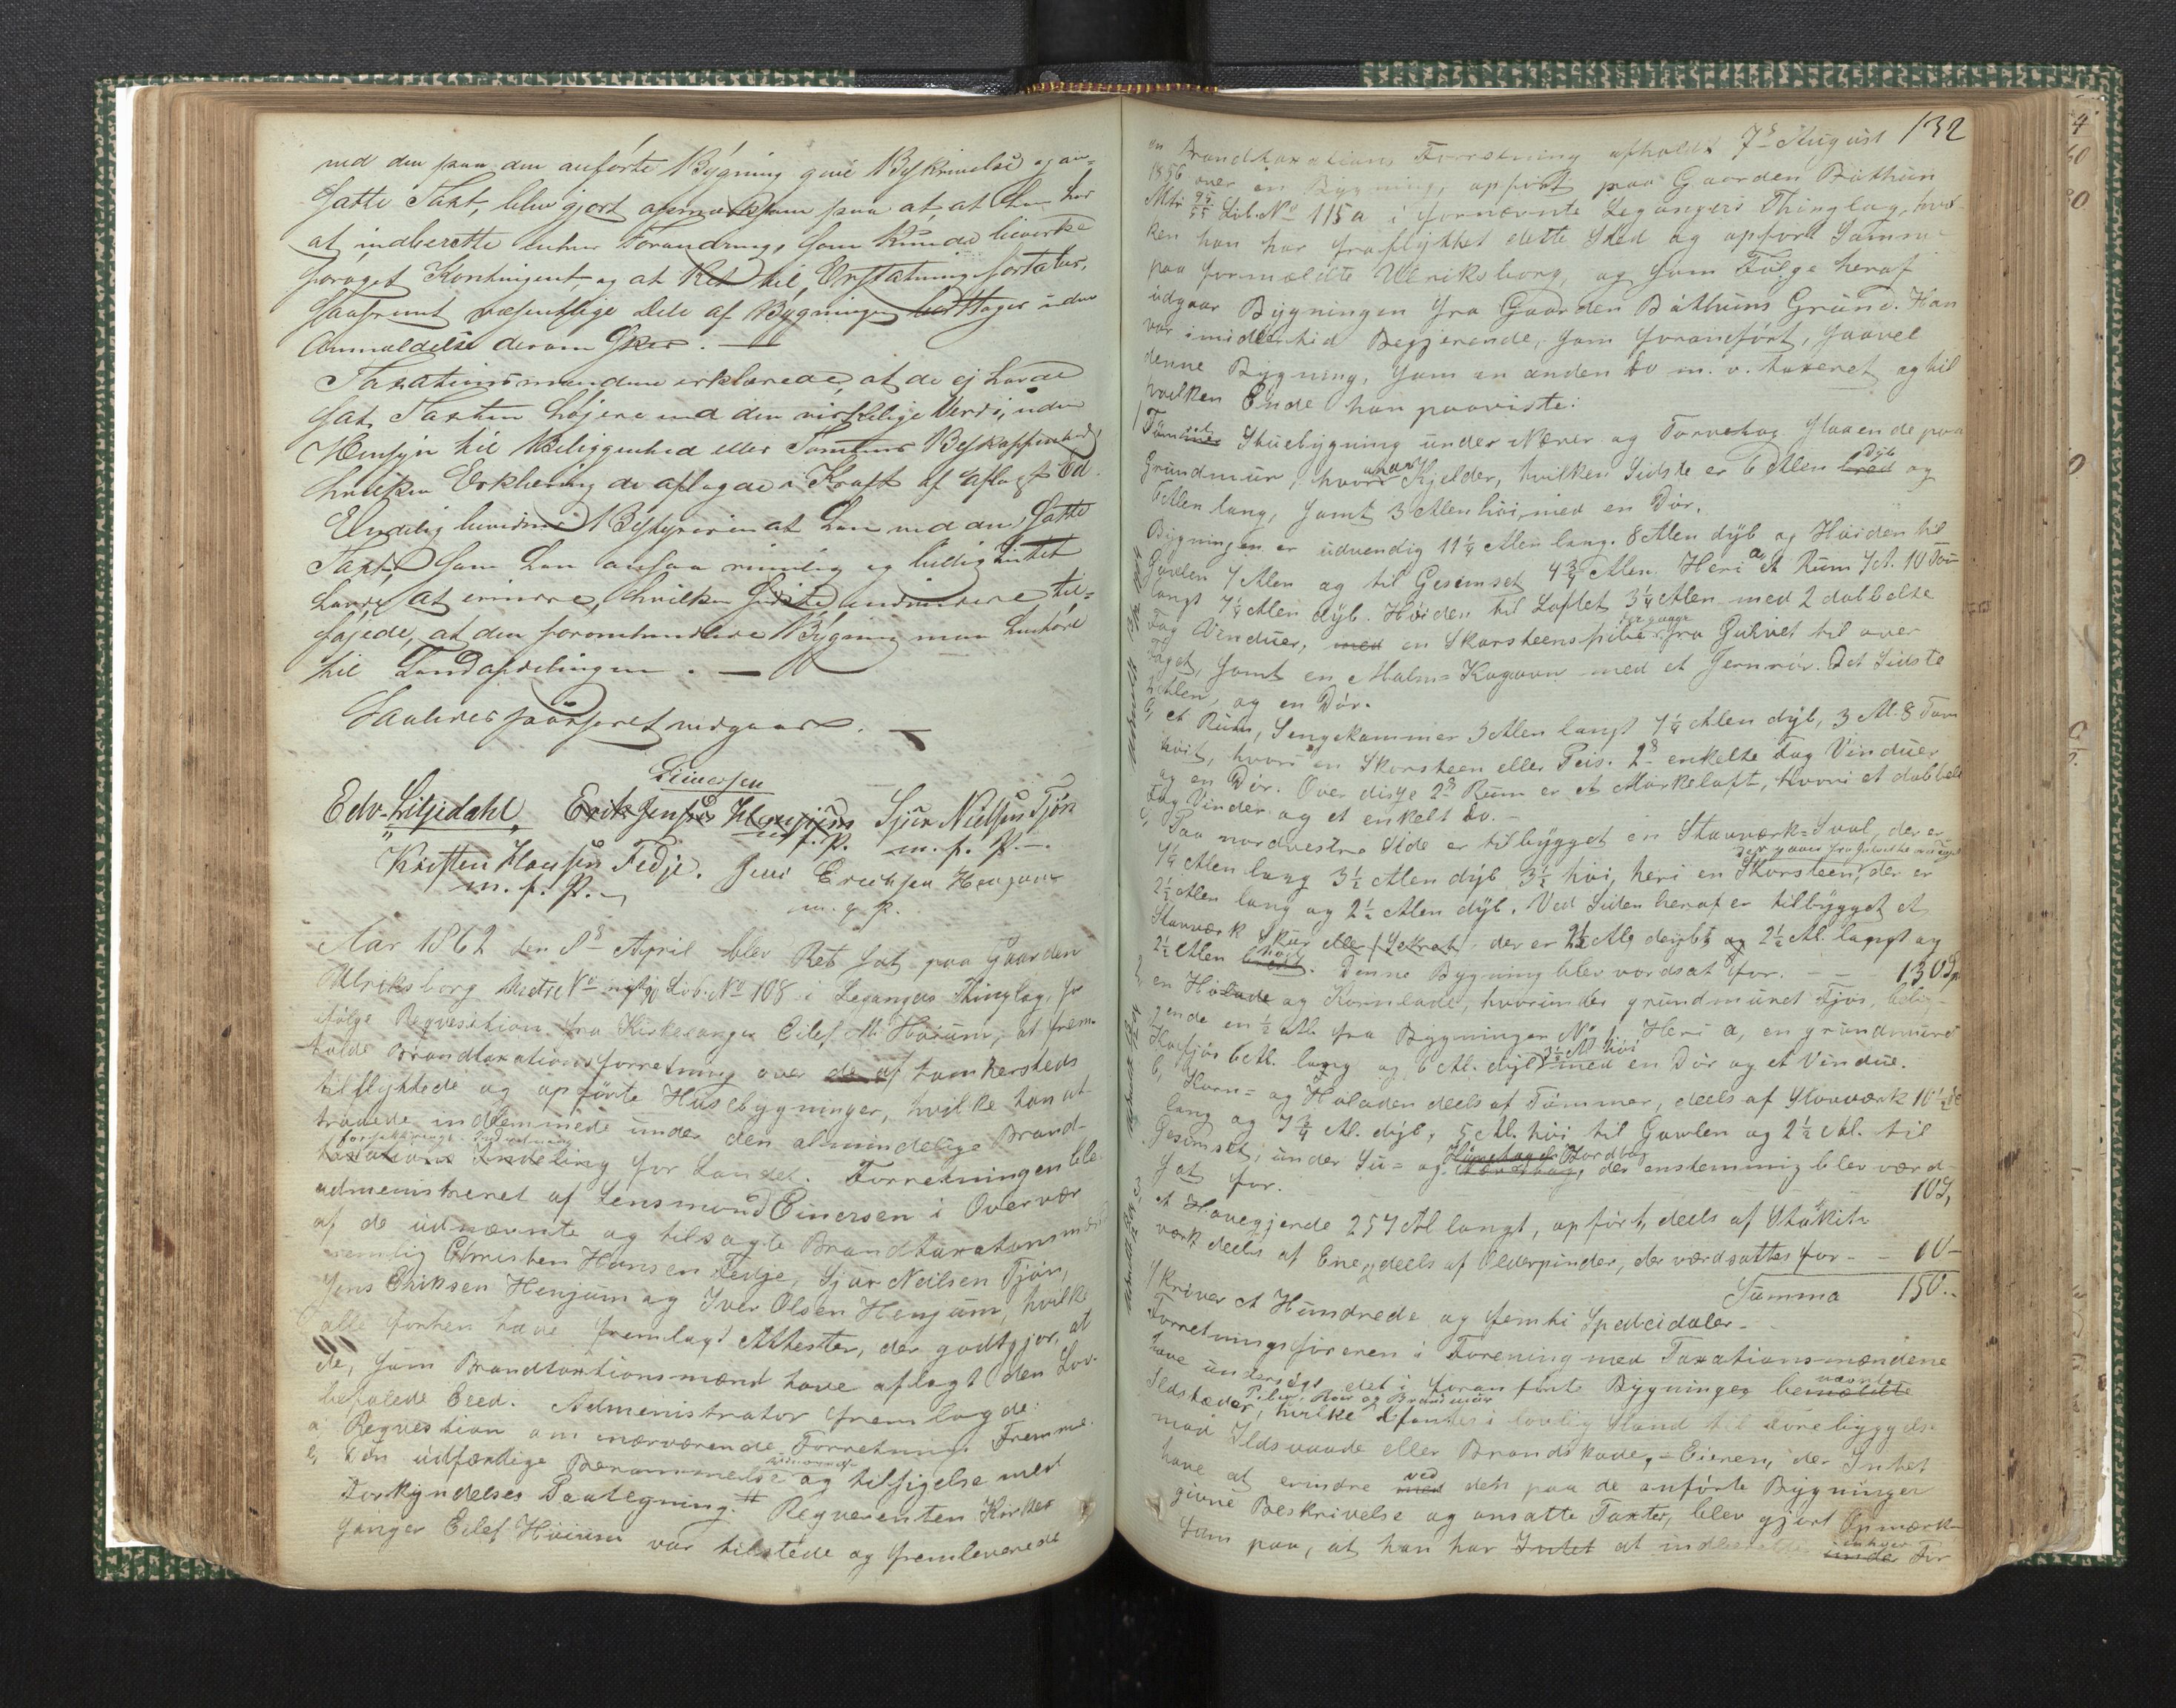 ved den paa den anførte Bygning givne Beskrivelse og an-
satte Taxt, blev gjort opmærksom paa at, at han har
at indberette enhver Forandring, som kunde bevirke
forøget Kontingent, og at Ret til Erstatning fortabes,
saafremt væsentlige Dele af Bygningen borttages uden
Anmeldelse derom skeer. —
Taxationsmændene erklærede, at de ej havde
sat Taxten høiere end den virkelige Værdi, uden
Hensyn til Beliggenhed eller Tomtens Beskaffenhed,
hvilken Erklæring de aflagde i Kraft af aflagt Ed.
Endelig bemærkes at han ved den satte
Taxt, som han ansaa rimelig og billig Intet
havde at erindre, hvilken Sidste endvidere til-
føjede, at den foromhandlede Bygning maa henhøre
til Landafdelingen. —
Saaledes passeret vidgaaes. —
Einersen
Edv. Liljedahl Erik Jensen Henjum Sjur Nielsen Tjøn
m. f. P. m. f. P.
Kristen Hansen Fedje. Jens Erichsen Henjum
m. f. P. m. f. P.
Aar 1862 den 8de April blev Ret sat paa Gaarden
Ulriksborg Matr No Løb. No 108 i Leganger Thinglag, i
følge Reqvisition fra Kirkesanger Eilef M. Høium, at frem-
holde Brandtaxationsforretning over de af ham hersteds
tilflyttede og opførte Husebygninger, hvilke han at-
traaede indlemmede under den almindelige Brand-
forsikrings Indretning
taxations Indeling for Landet. Forretningen blev
administreret af Lensmand Einersen i Overvær
af de udnævnte og tilsagte Brandtaxationsmænd
nemlig Christen Hansen Fedje, Sjur Neilsen Tjøn,
Jens Eriksen Henjum og Iver Olsen Henjum, hvilke
alle forhen have fremlagt Attester, der godtgjør, at
de, som Brandtaxtionsmænd have aflagt den Lov-
befalede Eed. Administrator fremlagde:
a, Reqvestion om nærværende Forretnings Fremme.
b, den udfærdige Berammelse og tilsigelse med
Forkyndelses Paategning. # Reqverenten Kirke-
sanger Eilef Høium var tilstede og fremleverede
132
en Brandtaxations Forretning afholdt 7de August
1856 over en Bygning, opført paa Gaarden Båthun
Mtr. Løb. No 115a i fornævnte Legangers Thinglag, hvil-
ken han har fraflyttet dette Sted og opført Samme
paa formeldte Ulriksborg, og som Følge heraf
udgaar Bygningen fra Gaarden Båthuns Grund. Han
var imidlertid Begjerende, som foranført, saavel
denne Bygning, som en anden do m. v. taxeret og til
hvilken Ende han paaviste:
1, Tømret Stuebygning under Næver og Torvetag staaende paa
Grundmur, hvorunder Kjelder, hvilken Sidste er 6 Alen bred dyb og
6 Alen lang, samt 3 Alen høi, med en Dør.
Bygningen er udvendig 11 ¼ Alen lang. 8 Alen dyb og Høiden til
Gavlen 7 Alen og til Gesimset 4 ¾ Alen. Heri a, et Rum 7 A. 10 Tom
langt 7 ¼ Alen dyb. Høiden til Loftet 3 ¼ Alen med 2 dobbelte
Fag Vinduer, med en Skorsteenspibe fra Gulvet til over
Taget, samt en Malm-Kogeovn med et Jernrør. Det Sidste
Alen, og en Dør.
b, et Rum, Sengekammer 3 Alen langt 7 ¼ Alen dyb, 3 Al. 8 Tom
høit, hvori en Skorsteen eller Peis. 2de enkelte Fag Vinduer
og en Dør. Over disse 2de Rum er et Mørkeloft, hvori et dobbelt
Fag Vinder og et enkelt do. —
c, Paa nordvestre Side er tilbygget en Stavværk-Sval, der er
7 ¼ Alen lang 3 ½ Alen dyb 3 ½ høi, heri en Skorsteen, der er
2 ½ Alen lang og 2 ½ Alen dyb. Ved Siden heraf er tilbygget et
Stavværk Skur eller Sekret, der er 2 ½ Al. deybt og 2 ½ Al. langt og
2 ½ Alen høit. Denne Bygning blev værdsat for. — 130 Sp
2, en Hølade og Kornlade, hvorunder grundmuret Fjøs, belig-
gende en ½ Al. fra Bygningen No 1. Heri a, en grundmuret
Kofjøs 6 Al. lang og 6 Al. dyb 3 ½ Al. høi med en Dør og et Vindue.
b, Korn- og Høladen deels af Tømmer, deels af Stavværk 10 ½ Al
lang og 7 ¾ Al. dyb, 5 Al. høi til Gavlen og 2 ½ Al. til
Gesimset, under Su- og Jordbog, der enstemmig blev værd-
sat for. 10 S,
et Havegjerde 257 Al langt, opført, deels af Stakit-
værk deels af Ene, deels af Olderpinder, der værdsattes for — 10 —
Summa 150. —
skriver et Hundrede og femti Speciedaler. —
Forretningsføreren i Forening med Taxationsmændene
have undersøgt det i foranførte Bygninger benævnte
Piber, Rør og Brandmur
Ildsteder, hvilke befantes i lovlig Stand til Forebyggelse
mod Ildsvaade eller Brandskade, — Eieren, der Intet
have at erindre ved den paa de anførte Bygninger
givne Beskrivelse og ansatte Taxter, blev gjort Opmærk-
som paa, at han har Intet at indberette enhver For